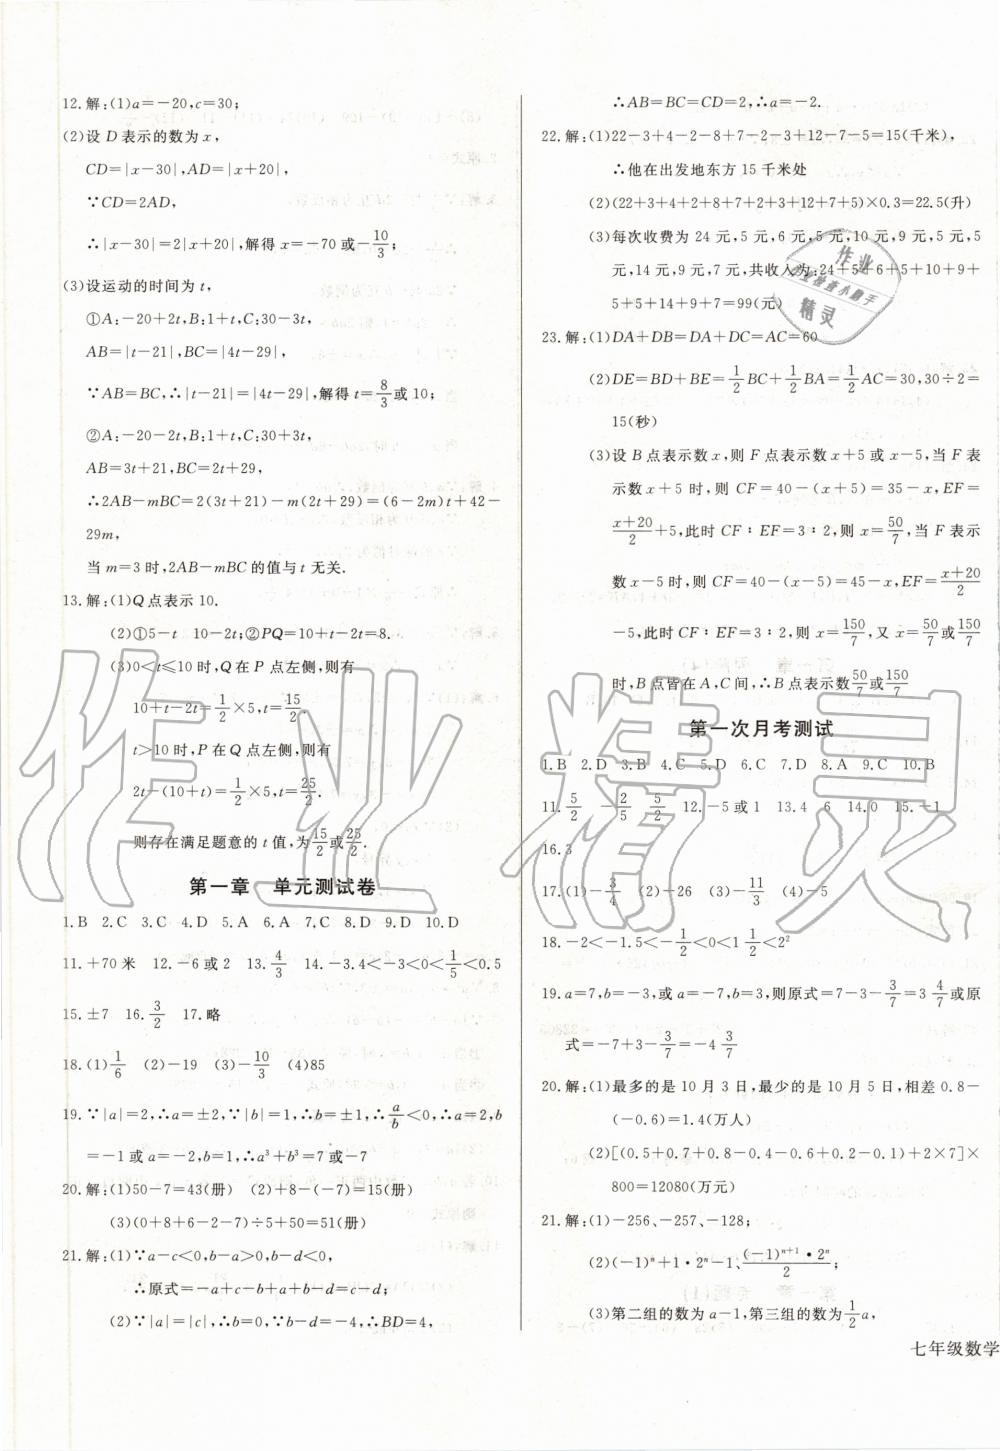 12.解:(1)a=-20,c=30;
(2)设 D 表示的数为 x,
CD=|x-30|,AD=|x+20|,
∵CD=2AD,
∴|x-30|=2|x+20|,解得 x=-70 或-10/3;
(3)设运动的时间为 t,
①A:-20+2t,B:1+t,C:30-3t,
AB=|t-21|,BC=|4t-29|,
∵AB=BC,∴|t-21|=|4t-29|,解得 t=8/3或 10;
②A:-20-2t,B:1+t,C:30+3t,
AB=3t+21,BC=2t+29,
∴2AB-mBC=2(3t+21)-m(2t+29)=(6-2m)t+42-
29m,
当 m=3 时,2AB-mBC 的值与 t 无关.
13.解:(1)Q点表示 10.
(2)①5-t 10-2t;②PQ=10+t-2t=8.
(3)0<t≤10 时,Q 在 P 点左侧,则有
10+t-2t=1/2×5,t=15/2.
t>10 时,P 在 Q 点左侧,则有
2t-(10+t)=1/2×5,t=25/2.
则存在满足题意的 t 值,为15/2或25/2.
第一章 单元测试卷
1.B 2.C 3.C 4.D 5.A 6.A 7.C 8.D 9.D 10.D
11.+70 米 12.-6 或 2 13.4/3 14.-3.4<-3<0<1/5<0.5
15.±7 16.3/2 17.略
18.(1)1/6 (2)-19 (3)-10/3 (4)85
19.∵|a|=2,∴a=±2,∵|b|=1,∴b=±1,∴a/b<0,∴a=2,b
=-1 或 a=-2,b=1,∴a³+b³=7 或-7
20.解:(1)50-7=43(册) (2)+8-(-7)=15(册)
(3)(0+8+6-2-7)÷5+50=51(册)
21.解:(1)∵a-c<0,b-a>0,b-d<0,
∴原式=-a+c-b+a+b-d=c-d;
(2)∵|a|=|c|,∴b=0,∵b-d=-4,∴BD=4,
∴AB=BC=CD=2,∴a=-2.
22.解:(1)22-3+4-2-8+7-2-3+12-7-5=15(千米),
∴他在出发地东方 15 千米处
(2)(22+3+4+2+8+7+2+3+12+7+5)×0.3=22.5(升)
(3)每次收费为 24 元,5 元,6 元,5 元,10 元,9 元,5 元,5
元,14 元,9 元,7 元,共收入为:24+5+6+5+10+9+
5+5+14+9+7=99(元)
23.解:(1)DA+DB=DA+DC=AC=60
(2)DE=BD+BE=1/2BC+1/2BA=1/2AC=30,30÷2=
15(秒)
(3)设 B 点表示数 x,则 F 点表示数 x+5 或 x-5,当 F 表
示数 x+5 时,则 CF=40-(x+5)=35-x,EF=
x+20/2+5,此时 CF∶EF=3∶2,则 x=50/7,当 F 表示
数 x-5 时,则 CF=40-(x-5)=45-x,EF=x+20/2
-5,此时 CF∶EF=3∶2,则 x=150/7,又 x=50/7或150/7
时,B 点皆在 A,C 间,∴B 点表示数50/7或150/7
第一次月考测试
1.B 2.D 3.B 4.C 5.D 6.C 7.D 8.A 9.C 10.B
11.5/2 -2/5 5/2 12.-5 或 1 13.4 6 14.0 15.-1
16.3
17.(1)-3/4 (2)-26 (3)-11/3 (4)-5
18.-2<-1.5<-1/2<0<1 1/2<2²
19.a=7,b=-3,或 a=-7,b=3,则原式=7-3-3/7=3 4/7或原
式=-7+3-3/7=-4 3/7
20.解:(1)最多的是 10 月 3 日,最少的是 10 月 5 日,相差 0.8-
(-0.6)=1.4(万人)
(2)[(0.5+0.7+0.8-0.4-0.6+0.2-0.1)+2×7]×
800=12080(万元)
21.解:(1)-256、-257、-128;
(2)(-1)ⁿ+1·2ⁿ-1、(-1)ⁿ⁺¹·2ⁿ/2;
(3)第二组的数为 a-1,第三组的数为1/2a,
七年级数学
作业
作业检查小助手
精灵
作业精灵